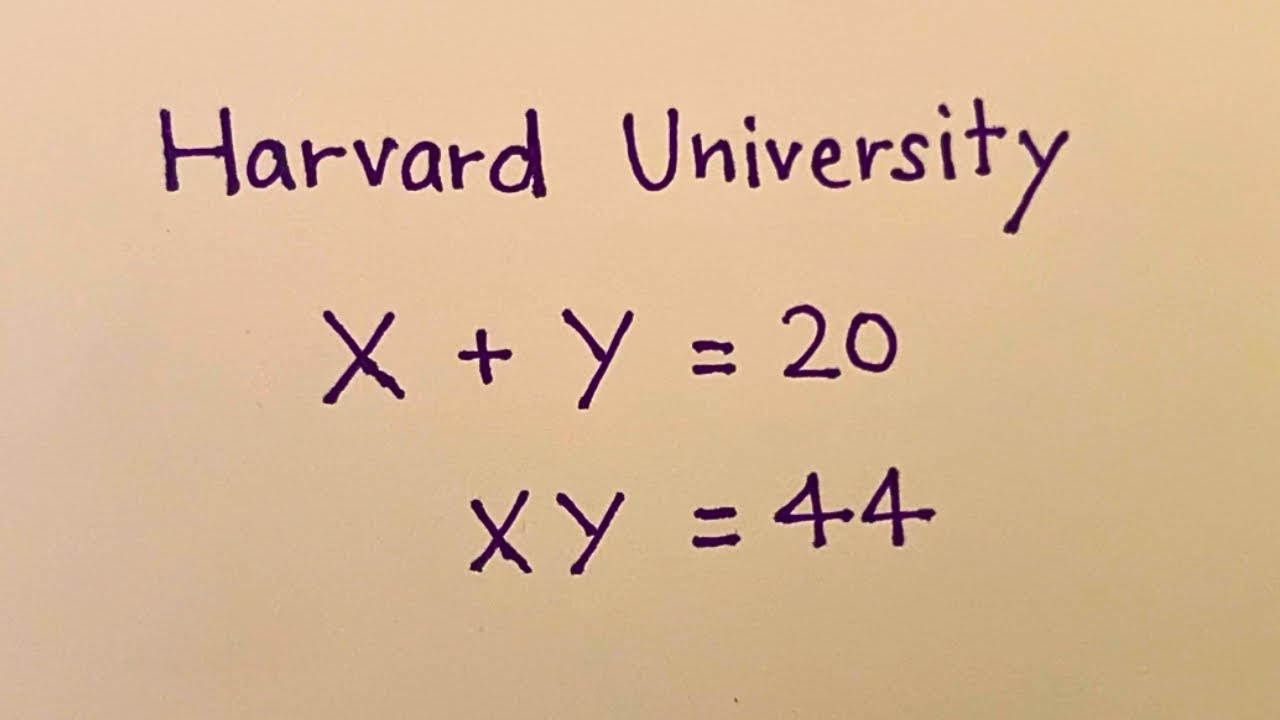 Harvard University
X + Y = 20
XY = 44